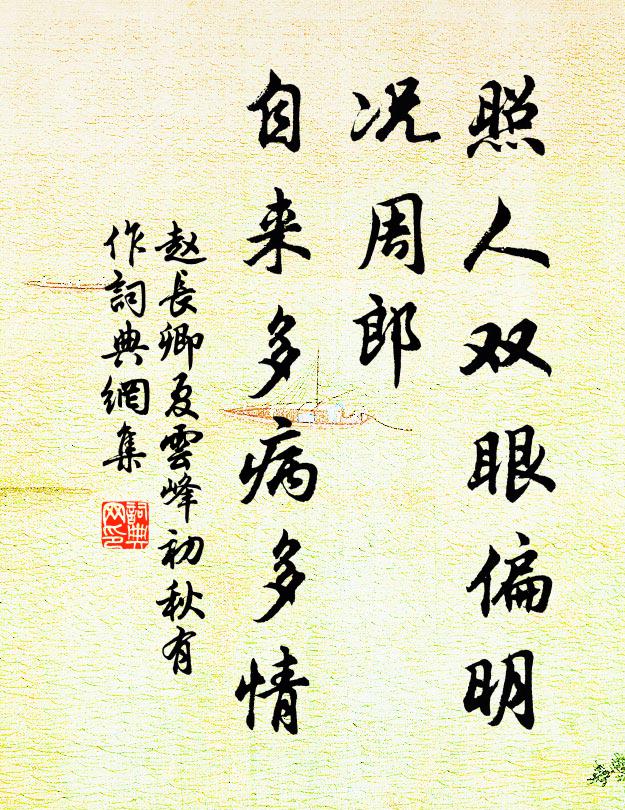 照人双眼偏明
况周郎
自来多病多情
赵長卿夏雲峰初秋有
作詞典網集
詞典
网印